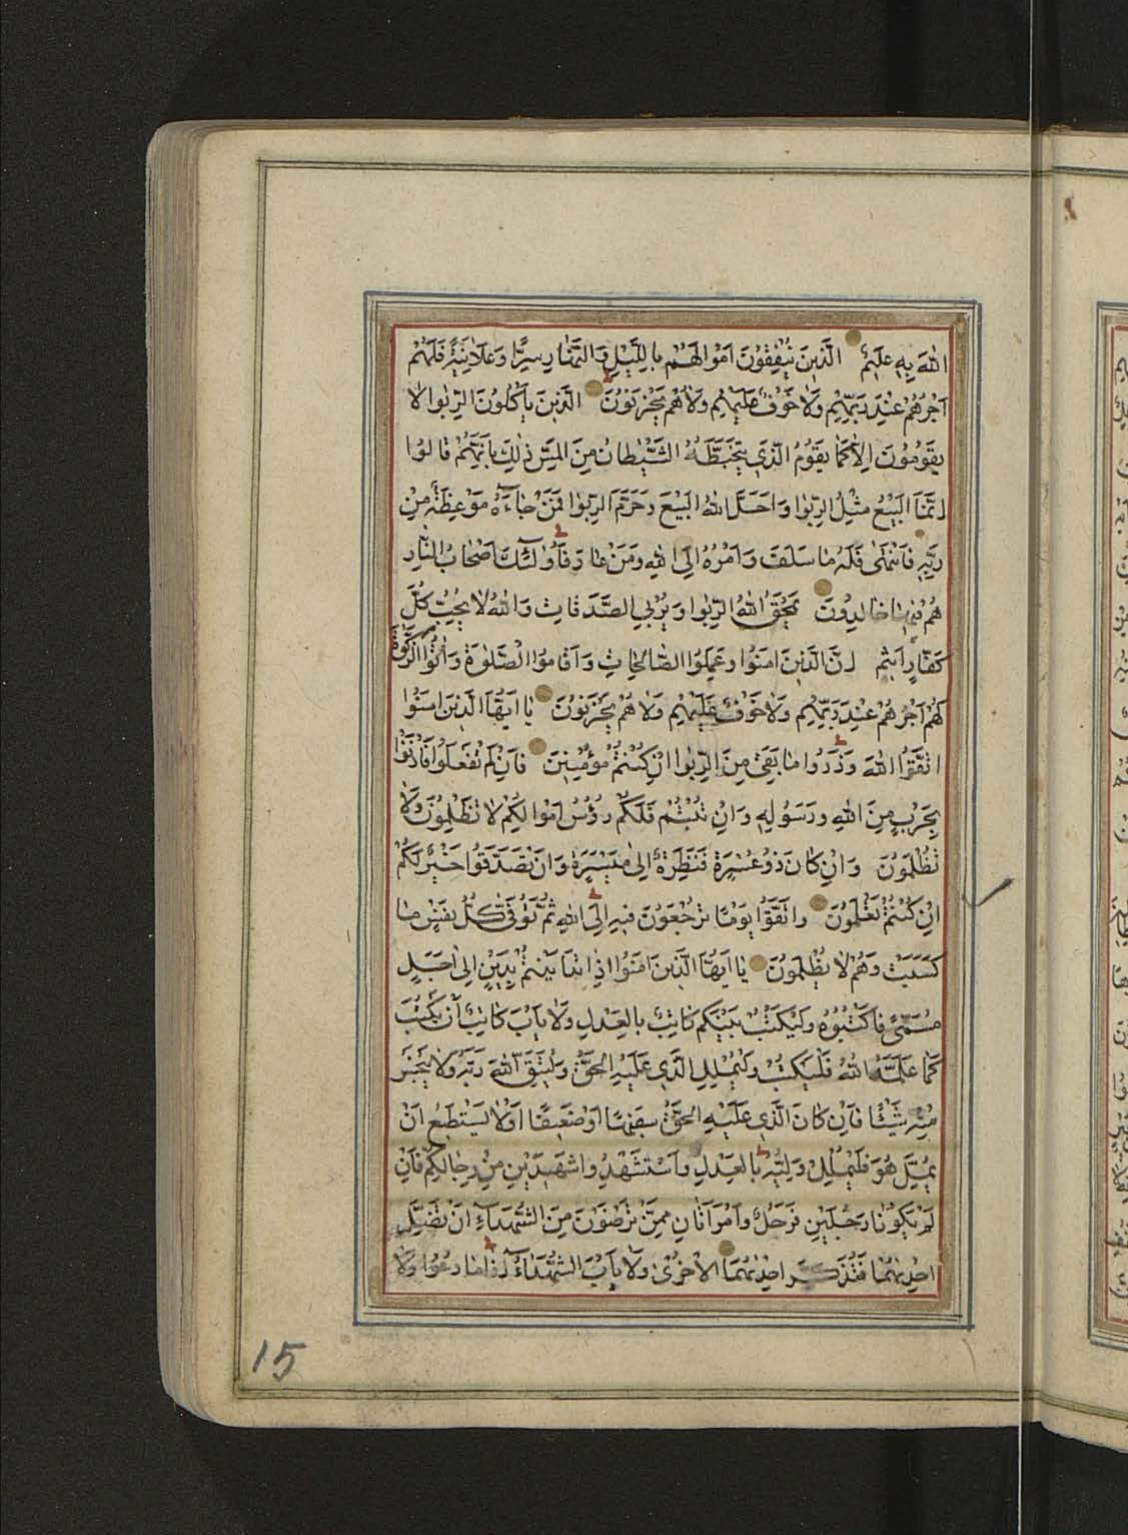 اللهَ بِهِ عَلِيمٌ الَّذِينَ يُنْفِقُونَ اَمْوَالَهُمْ بِاللَّيْلِ وَالنَّهَارِ سِرًّا وَعَلَانِيَةً فَلَهُمْ
اَجْرُهُمْ عِنْدَ رَبِّهِمْ وَلَا خَوْفٌ عَلَيْهِمْ وَلَا هُمْ يَحْزَنُونَ الَّذِينَ يَأْكُلُونَ الرِّبٰوا لَا
يَقُومُونَ اِلَّا كَمَا يَقُومُ الَّذِي يَتَخَبَّطُهُ الشَّيْطَانُ مِنَ الْمَسِّ ذٰلِكَ بِاَنَّهُمْ قَالُوا
اِنَّمَا الْبَيْعُ مِثْلُ الرِّبٰوا وَاَحَلَّ اللهُ الْبَيْعَ وَحَرَّمَ الرِّبٰوا فَمَنْ جَاءَهُ مَوْعِظَةٌ مِنْ
رَبِّهِ فَانْتَهٰى فَلَهُ مَا سَلَفَ وَاَمْرُهُ اِلَى اللهِ وَمَنْ عَادَ فَاُولٰئِكَ اَصْحَابُ النَّارِ
هُمْ فِيهَا خَالِدُونَ يَمْحَقُ اللهُ الرِّبٰوا وَيُرْبِي الصَّدَقَاتِ وَاللهُ لَا يُحِبُّ كُلَّ
كَفَّارٍ اَثِيمٍ اِنَّ الَّذِينَ اٰمَنُوا وَعَمِلُوا الصَّالِحَاتِ وَاَقَامُوا الصَّلٰوةَ وَاٰتَوُا الزَّكٰوةَ
لَهُمْ اَجْرُهُمْ عِنْدَ رَبِّهِمْ وَلَا خَوْفٌ عَلَيْهِمْ وَلَا هُمْ يَحْزَنُونَ يَا اَيُّهَا الَّذِينَ اٰمَنُوا
اتَّقُوا اللهَ وَذَرُوا مَا بَقِيَ مِنَ الرِّبٰوا اِنْ كُنْتُمْ مُؤْمِنِينَ فَاِنْ لَمْ تَفْعَلُوا فَأْذَنُوا
بِحَرْبٍ مِنَ اللهِ وَرَسُولِهِ وَاِنْ تُبْتُمْ فَلَكُمْ رُؤُسُ اَمْوَالِكُمْ لَا تَظْلِمُونَ وَلَا
تُظْلَمُونَ وَاِنْ كَانَ ذُو عُسْرَةٍ فَنَظِرَةٌ اِلٰى مَيْسَرَةٍ وَاَنْ تَصَدَّقُوا خَيْرٌ لَكُمْ
اِنْ كُنْتُمْ تَعْلَمُونَ وَاتَّقُوا يَوْمًا تُرْجَعُونَ فِيهِ اِلَى اللهِ ثُمَّ تُوَفّٰى كُلُّ نَفْسٍ مَا
كَسَبَتْ وَهُمْ لَا يُظْلَمُونَ يَا اَيُّهَا الَّذِينَ اٰمَنُوا اِذَا تَدَايَنْتُمْ بِدَيْنٍ اِلٰى اَجَلٍ
مُسَمًّى فَاكْتُبُوهُ وَلْيَكْتُبْ بَيْنَكُمْ كَاتِبٌ بِالْعَدْلِ وَلَا يَأْبَ كَاتِبٌ اَنْ يَكْتُبَ
كَمَا عَلَّمَهُ اللهُ فَلْيَكْتُبْ وَلْيُمْلِلِ الَّذِي عَلَيْهِ الْحَقُّ وَلْيَتَّقِ اللهَ رَبَّهُ وَلَا يَبْخَسْ
مِنْهُ شَيْئًا فَاِنْ كَانَ الَّذِي عَلَيْهِ الْحَقُّ سَفِيهًا اَوْ ضَعِيفًا اَوْ لَا يَسْتَطِيعُ اَنْ
يُمِلَّ هُوَ فَلْيُمْلِلْ وَلِيُّهُ بِالْعَدْلِ وَاسْتَشْهِدُوا شَهِيدَيْنِ مِنْ رِجَالِكُمْ فَاِنْ
لَمْ يَكُونَا رَجُلَيْنِ فَرَجُلٌ وَامْرَاَتَانِ مِمَّنْ تَرْضَوْنَ مِنَ الشُّهَدَاءِ اَنْ تَضِلَّ
اِحْدٰيهُمَا فَتُذَكِّرَ اِحْدٰيهُمَا الْاُخْرٰى وَلَا يَأْبَ الشُّهَدَاءُ اِذَا مَا دُعُوا وَلَا
15